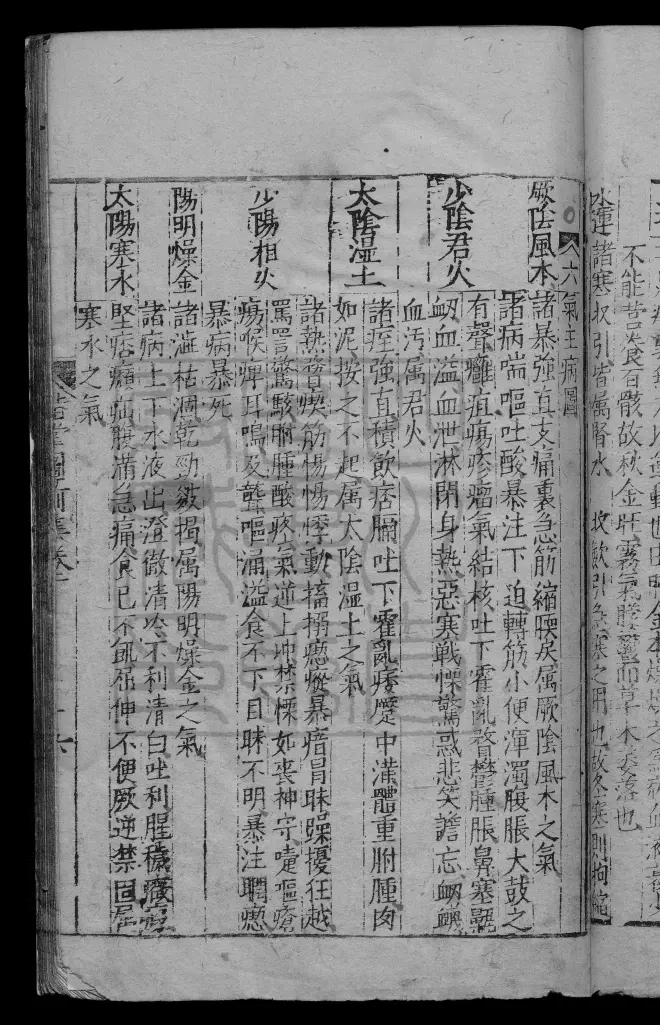 不能苦食百骸故秋金旺霧氣勝鬱而草木萎落也
水運諸寒收引皆屬腎水 收歛引急寒之用也故冬寒則拘縮
六氣主病圖
厥陰風木 諸暴強直支痛裏急筋縮㑌戾属厥陰風木之氣
諸病喘嘔吐酸暴注下迫轉筋小便渾濁腹脹大鼓之
少陰君火 有聲癰疽瘍疹瘤氣結核吐下霍亂瞀鬱腫脹鼻塞鼽
衂血溢血泄淋閉身熱惡寒戰慄驚惑悲笑譫忘衂衊
血汚属君火
太陰湿土 諸痓強直積飲痞膈吐下霍亂痿躄中滿體重胕腫肉
如泥按之不起属太陰湿土之氣
諸熱瞀瘈筋惕惕悸動搐搦瘛瘲暴瘖冒昧躁擾狂越
少陽相火 罵詈驚駭胕腫酸疼氣逆上冲禁慄如喪神守嚏嘔瘡
瘍喉痺耳鳴及聾嘔涌溢食不下目昧不明暴注瞤瘛
暴病暴死
陽明燥金 諸澁枯涸乾勁皴揭属陽明燥金之氣
諸病上下水液出澄徹清冷不利清白吐利腥穢癥瘕
太陽寒水 堅痞㿗疝腹滿急痛食已不飢屈伸不便厥逆禁固属
寒水之氣